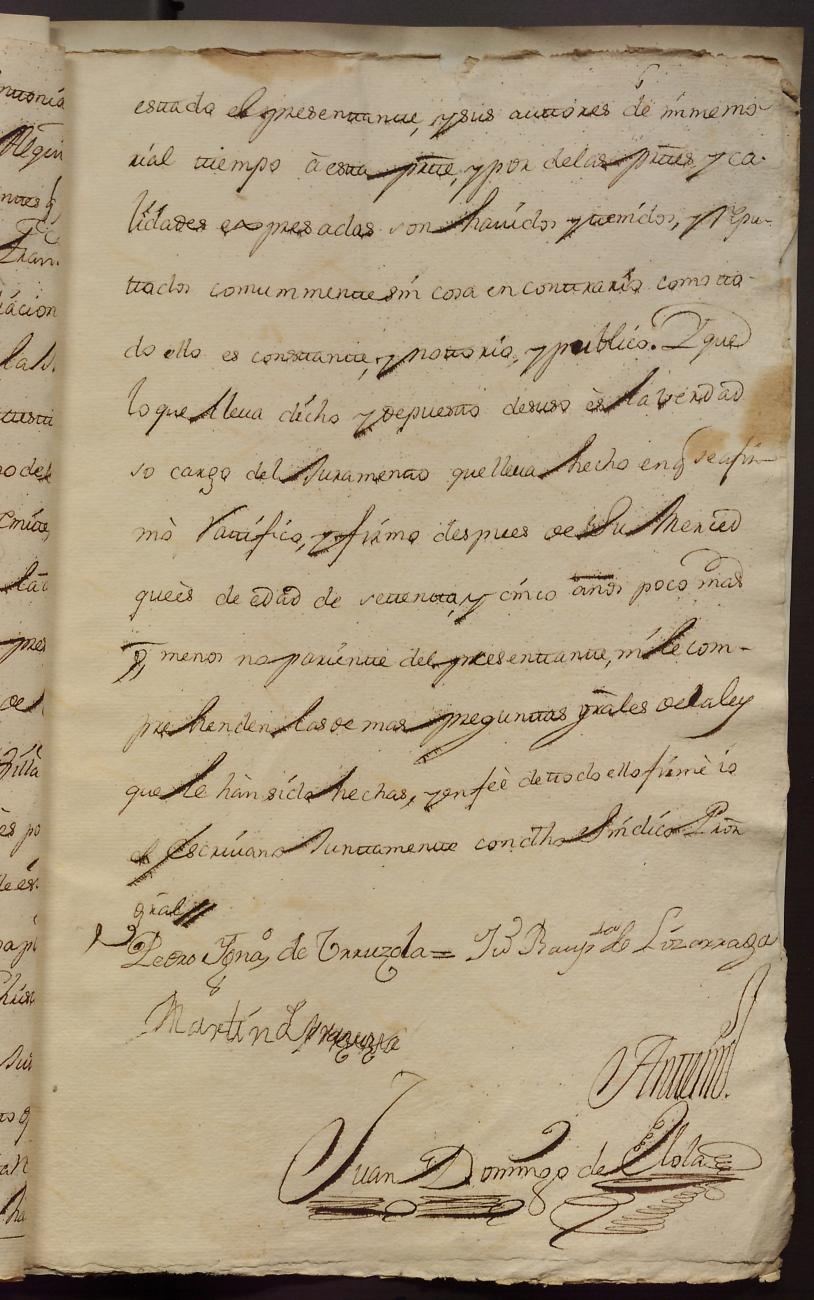 esttado el presenttantte, y sus auttores de inmemo-
rial ttiempo à estta pttte, y por de las prttes y ca-
lidades expresadas son havidos y ttenidos, y repu-
ttados comummentte sin cosa en conttrario como tto-
do ello es consttantte, y nottorio, y publico. Y que
lo que lleua dicho y depuestto desuso ès la verdad
so cargo del Juramentto que lleua hecho en q se afir-
mò Rattifico, y firmo despues de Su Merced
que ès de edad de settentta, y cinco años poco mas
ò, menos no parientte del presenttantte, ni le com-
prehenden las demas pregunttas grâles de la ley
que le hàn sido hechas, y en feè de ttodo ello firmè io
el Escriuano Junttamentte con dtho Sindico Pror
gràl//
Pedro Ignaº de Vrruzola = Jn Baupta de Lizarraga
Martin
Anttemi
Juan Domingo de Elola